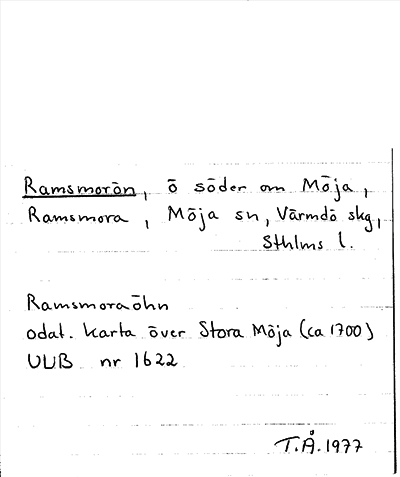 Ramsmorön, ö söder om Möja,
Ramsmora, Möja sn, Värmdö skg,
Sthlms l.
Ramsmoraöhn
odat. karta över Stora Möja (ca 1700)
UUB nr 1622
T.Å. 1977